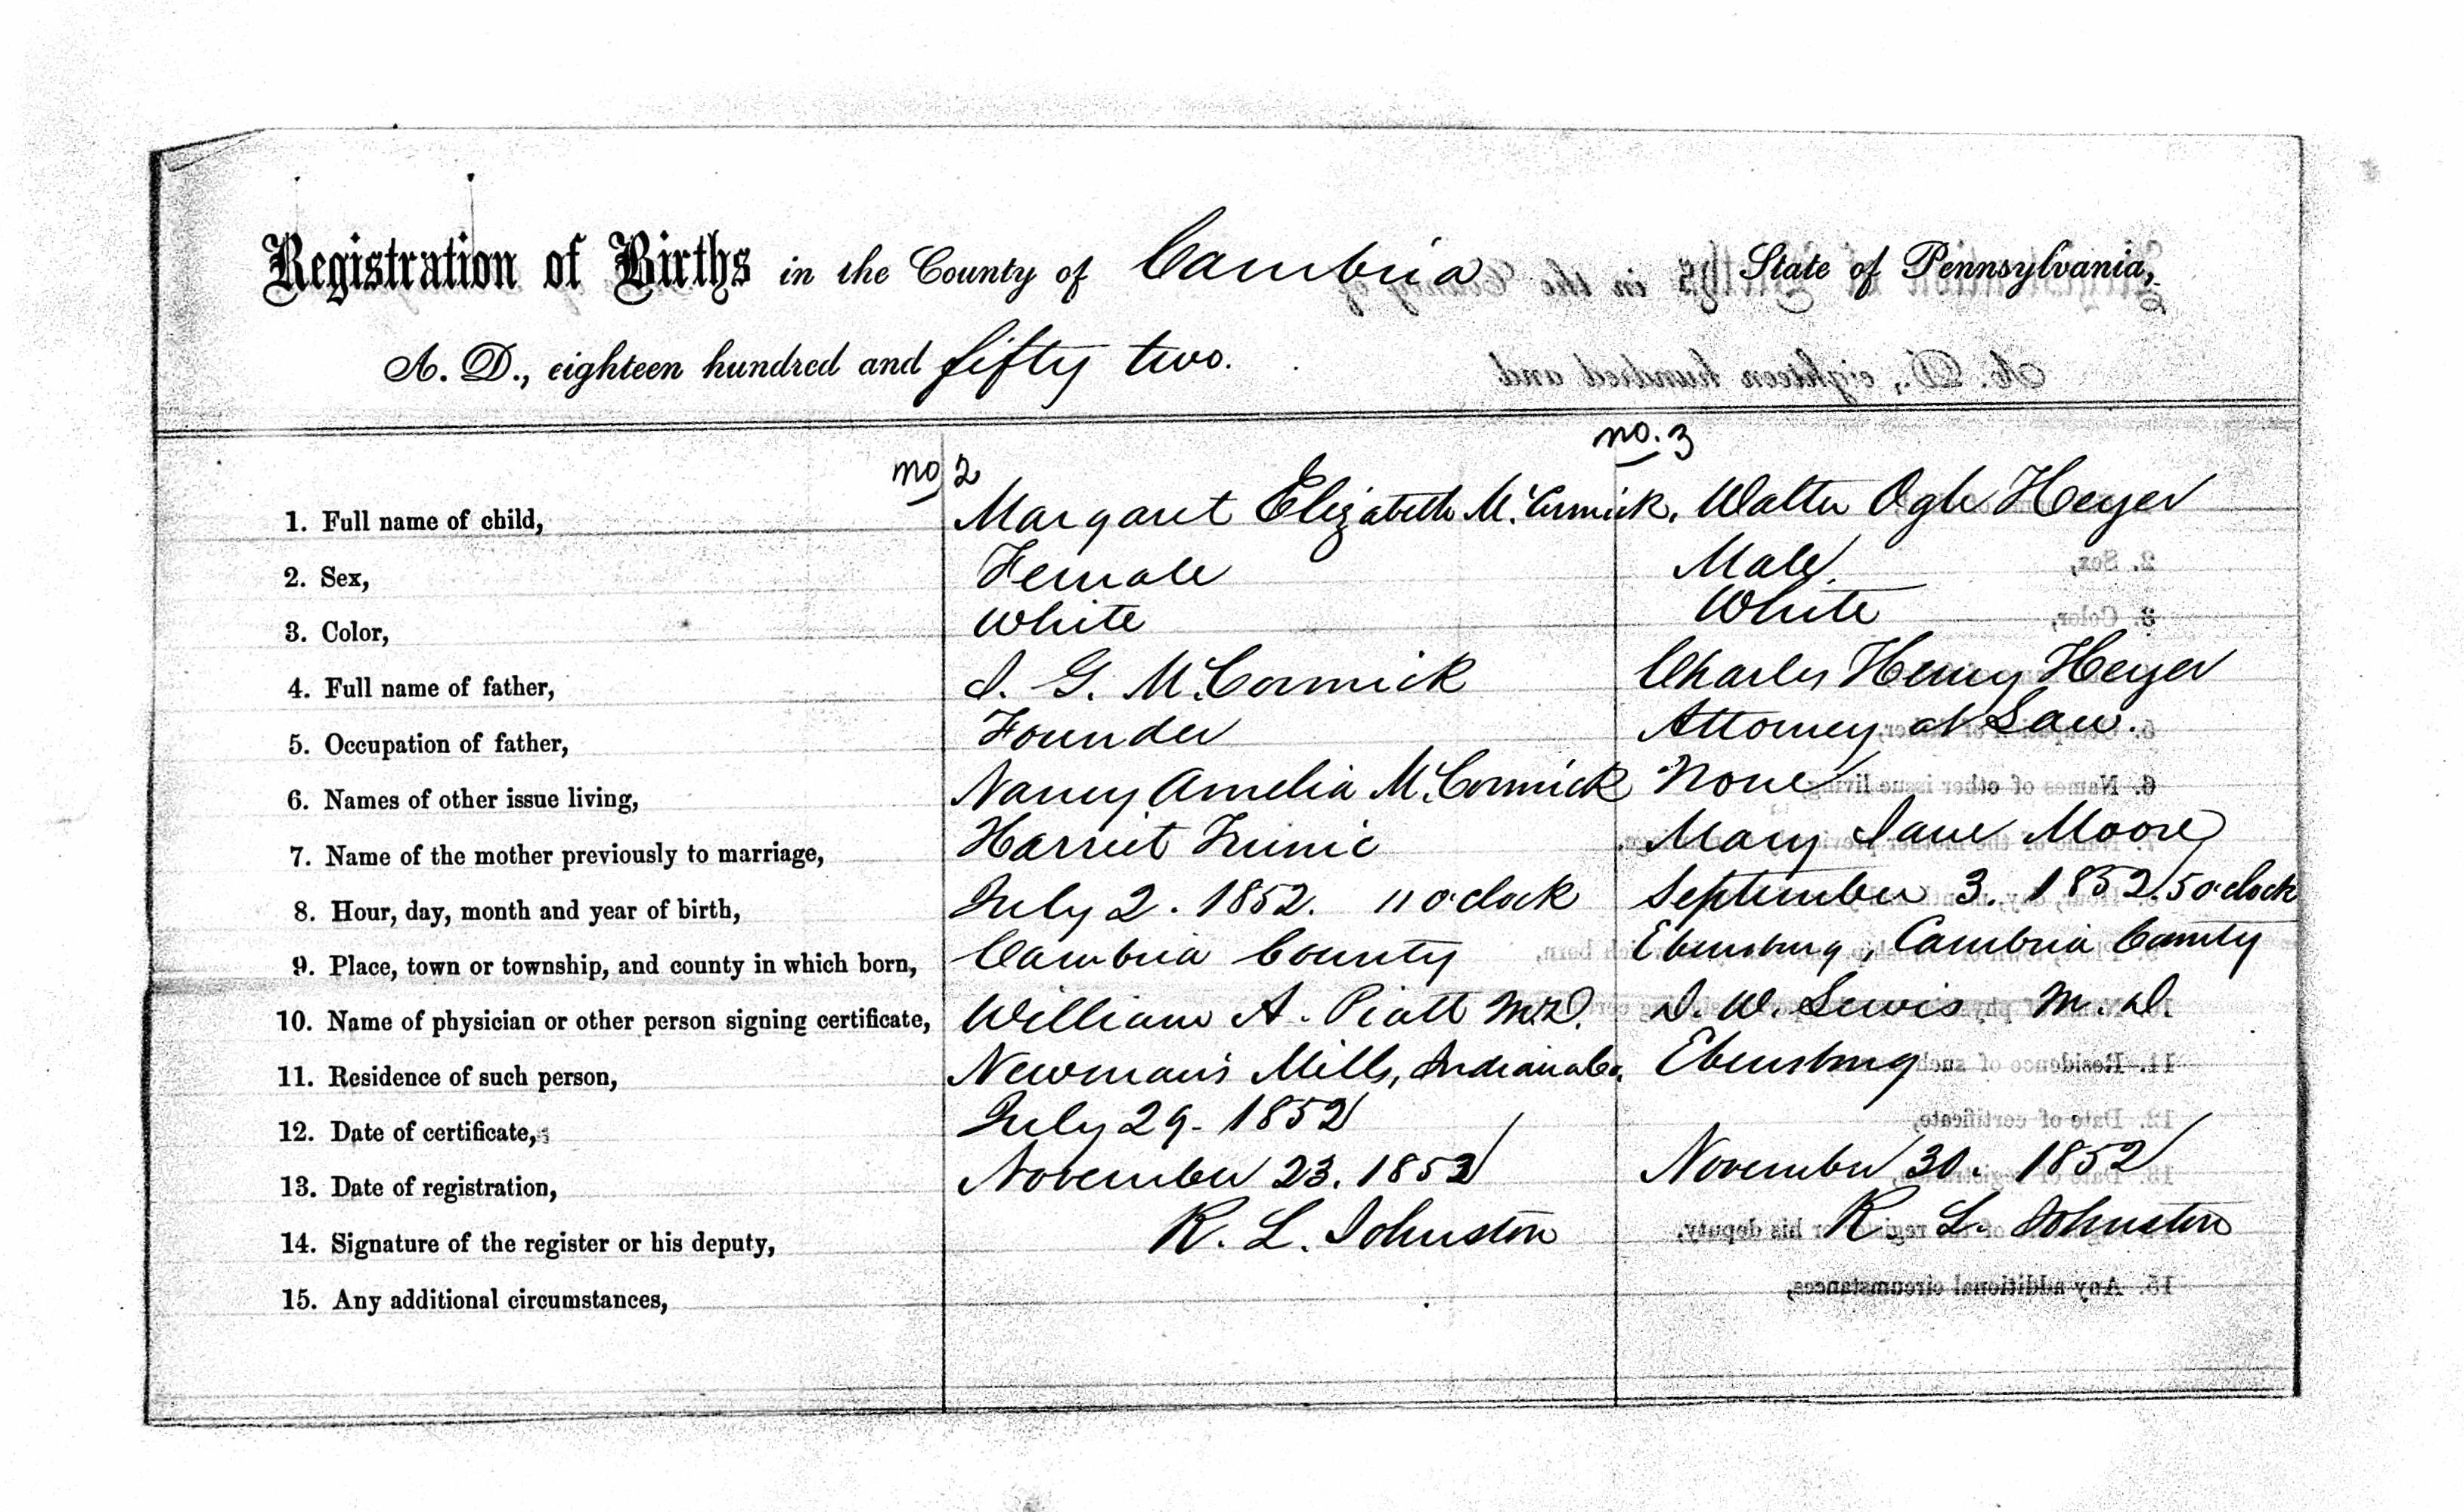 Registration of Births in the County of Cambria State of Pennsylvania,
A. D., eighteen hundred and fifty two.
no 2 no. 3
1. Full name of child, Margaret Elizabeth McCormick. Walter Ogle Heyer
2. Sex, Female Male.
3. Color, White White
4. Full name of father, J. G. McCormick Charles Henry Heyer
5. Occupation of father, Founder Attorney at Law.
6. Names of other issue living, Nancy Amelia McCormick None
7. Name of the mother previously to marriage, Harriet Mary Jane Moore
8. Hour, day, month and year of birth, July 2. 1852. 11 o'clock September 3. 1852. 5 o'clock
9. Place, town or township, and county in which born, Cambria County Ebensburg, Cambria County
10. Name of physician or other person signing certificate, William A. Piatt M.D. D. W. Lewis, M. D.
11. Residence of such person, Newman's Mills, Indiana Co. Ebensburg
12. Date of certificate, July 29. 1852
13. Date of registration, November 23. 1852 November 30. 1852
14. Signature of the register or his deputy, R. L. Johnston R. L. Johnston
15. Any additional circumstances,